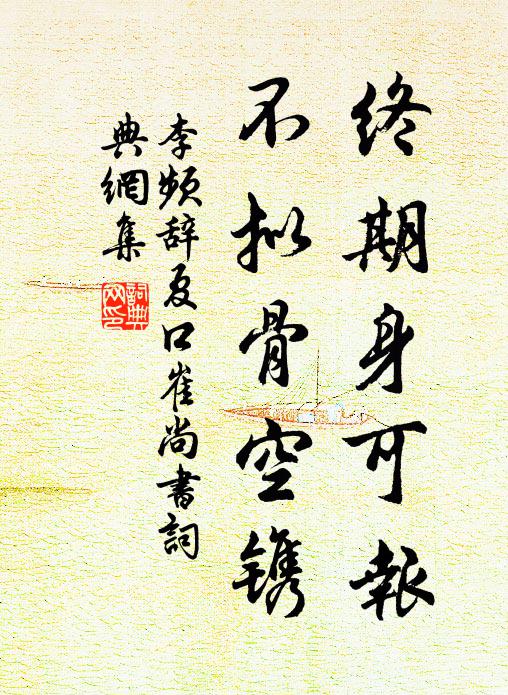 终期身可報
不拟骨空镌
李频辞夏口崔尚書詞
典網集
詞典
网印